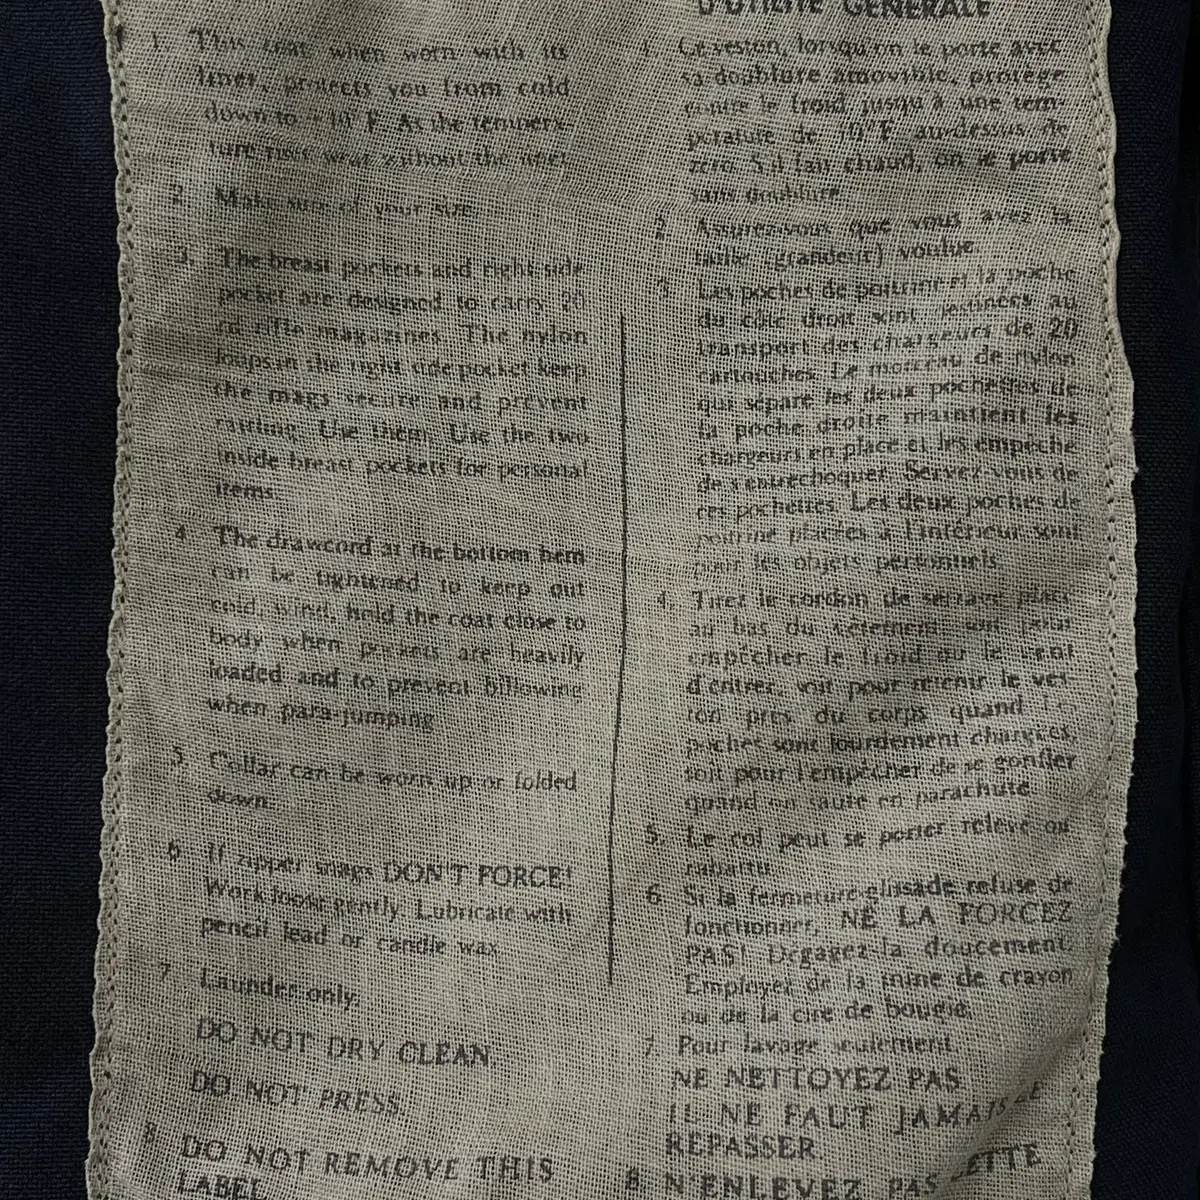 1. This coat when worn with its
liner, protects you from cold
down to 10°F. As the tempera-
ture rises wear without the liner.
2. Make sure of your size.
3. The breast pockets and right side
pocket are designed to carry 20
rd rifle magazines. The nylon
loops in the right side pocket keep
the mags secure and prevent
rattling. Use them. Use the two
inside breast pockets for personal
items.
4. The drawcord at the bottom hem
can be tightened to keep out
cold, wind, hold the coat close to
body when pockets are heavily
loaded and to prevent billowing
when para-jumping.
5. Collar can be worn up or folded
down.
6. If zipper snags DON'T FORCE!
Work loose gently. Lubricate with
pencil lead or candle wax.
7. Launder only.
DO NOT DRY CLEAN.
DO NOT PRESS.
8. DO NOT REMOVE THIS
LABEL
D'UTILITÉ GÉNÉRALE
1. Ce veston, lorsqu'on le porte avec
sa doublure amovible, protège
contre le froid jusqu'à une tem-
pérature de 10°F au-dessus de
zéro. S'il fait chaud, on le porte
sans doublure.
2. Assurez-vous que vous avez la
taille (grandeur) voulue.
3. Les poches de poitrine et la poche
du côté droit sont destinées au
transport des chargeurs de 20
cartouches. Le morceau de nylon
qui sépare les deux pochettes de
la poche droite maintient les
chargeurs en place et les empêche
de s'entrechoquer. Servez-vous de
ces pochettes. Les deux poches de
poitrine placées à l'intérieur sont
pour les objets personnels.
4. Tirer le cordon de serrage placé
au bas du vêtement soit pour
empêcher le froid ou le vent
d'entrer, soit pour retenir le ves-
ton près du corps quand les
poches sont lourdement chargées,
soit pour l'empêcher de se gonfler
quand on saute en parachute.
5. Le col peut se porter relevé ou
rabattu.
6. Si la fermeture-glissade refuse de
fonctionner, NE LA FORCEZ
PAS! Dégagez-la doucement.
Employez de la mine de crayon
ou de la cire de bougie.
7. Pour lavage seulement.
NE NETTOYEZ PAS
IL NE FAUT JAMAIS LE
REPASSER.
8. N'ENLEVEZ PAS CETTE